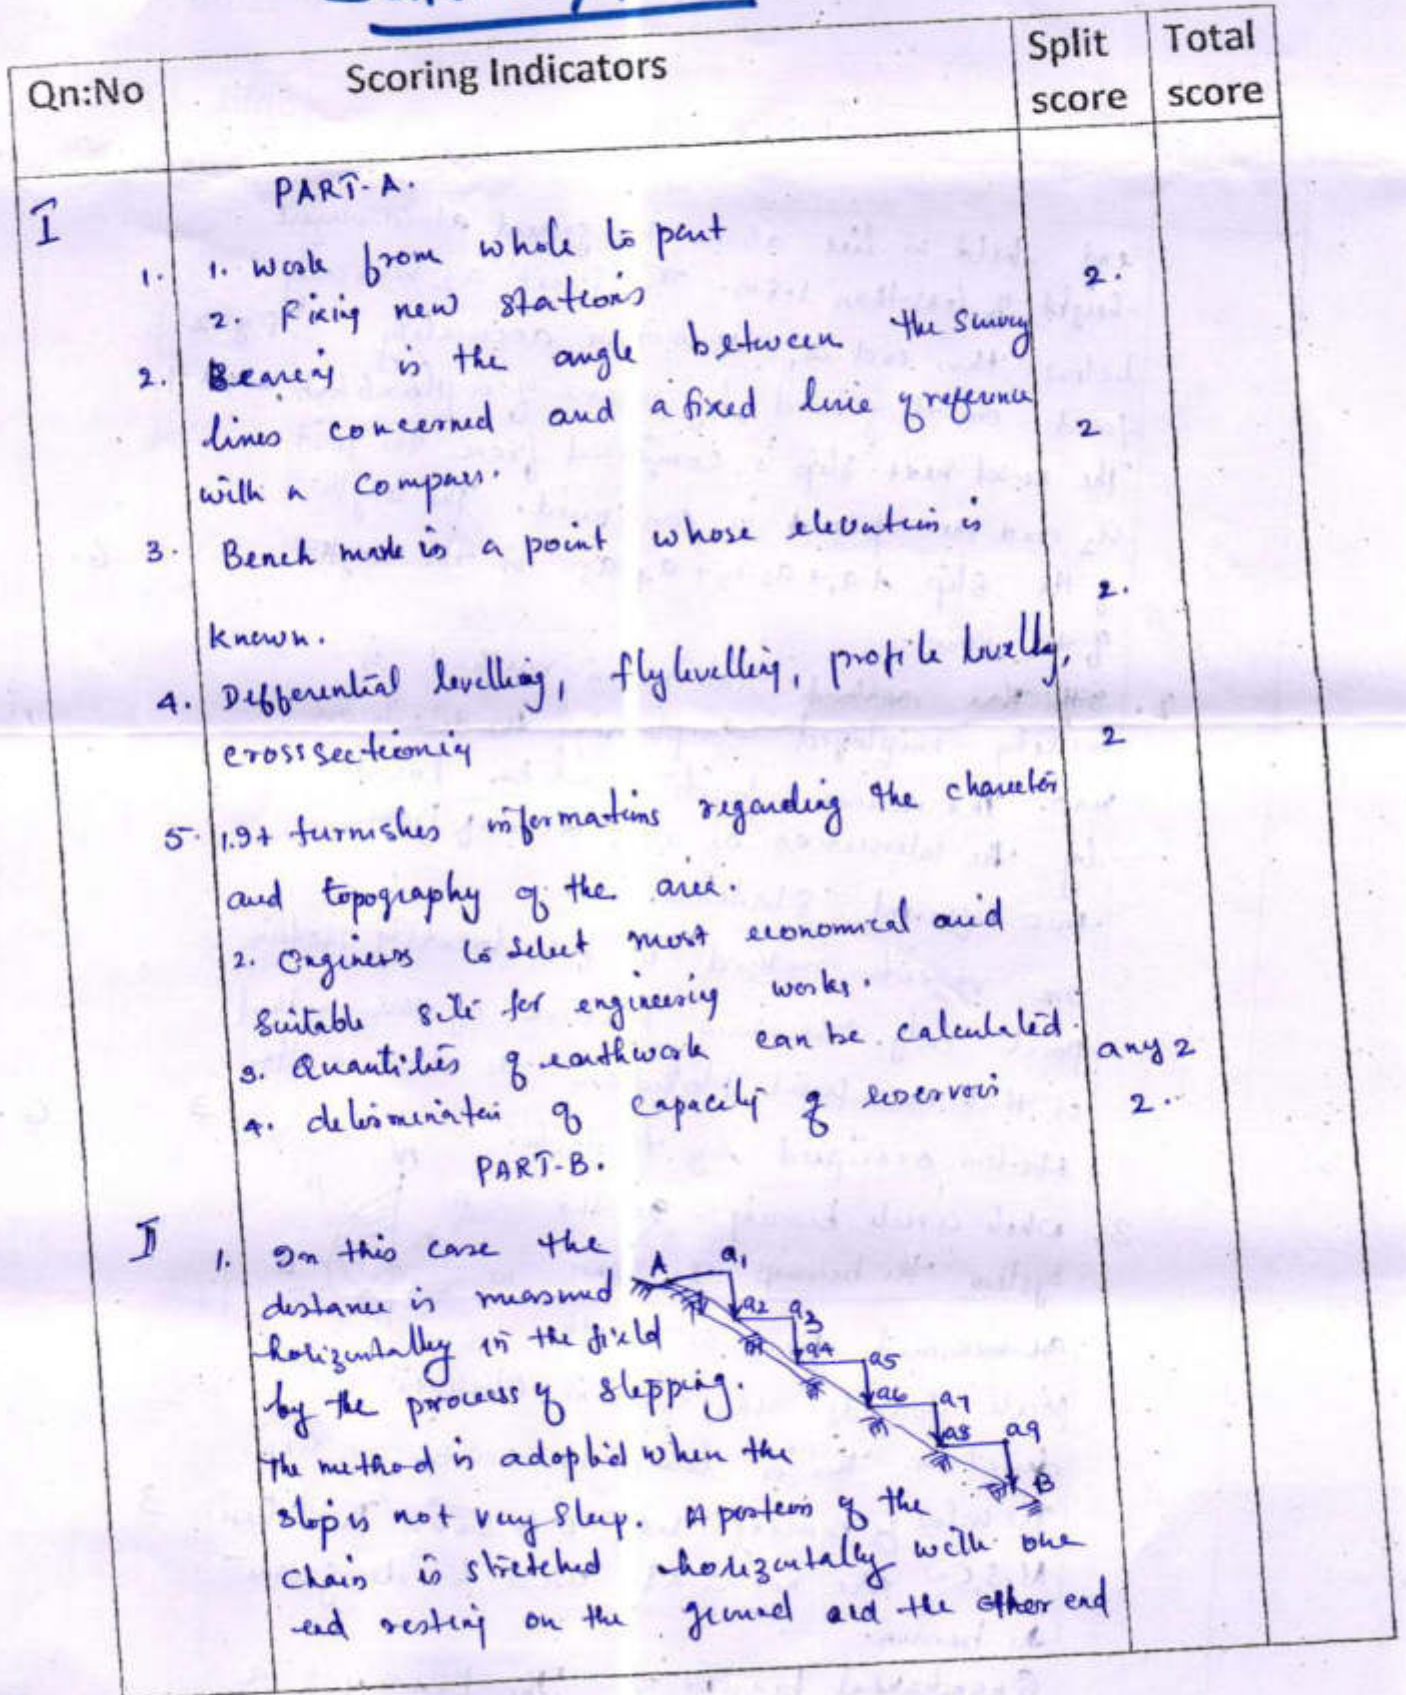 Qn:No Scoring Indicators Split score Total score
PART-A.
I
1. 1. Work from whole to part
2. Fixing new stations 2.
2. Bearing is the angle between the survey
lines concerned and a fixed line of reference 2
with a compass.
3. Bench mark is a point whose elevation is
2.
known.
4. Differential levelling, fly levelling, profile levelling,
cross sectioning 2
5. 1. It furnishes informations regarding the charecter
and topography of the area.
2. Engineers to select most economical and
Suitable site for engineering works.
3. Quantities of earthwork can be calculated. any 2
4. determination of capacity of reservoir 2.
PART-B.
II 1. In this case the
distance is measured
horizontally in the field
by the process of stepping.
The method is adopted when the
slop is not very steep. A portion of the
Chain is stretched horizontally with one
end resting on the ground and the other end
A a1
a2 a3
a4 a5
a6 a7
a8 a9
B